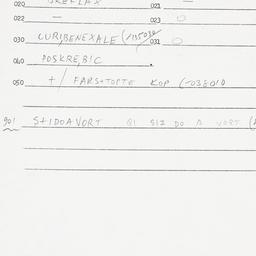 020 021 —
022 — 023 O
030 CURIBENEXALE 031 O
040 POSKRE,BIC .
050 + / FARS+TOPTE KOP (-038010
901 S+IDOAVORT 81 SIZ DO A VORT